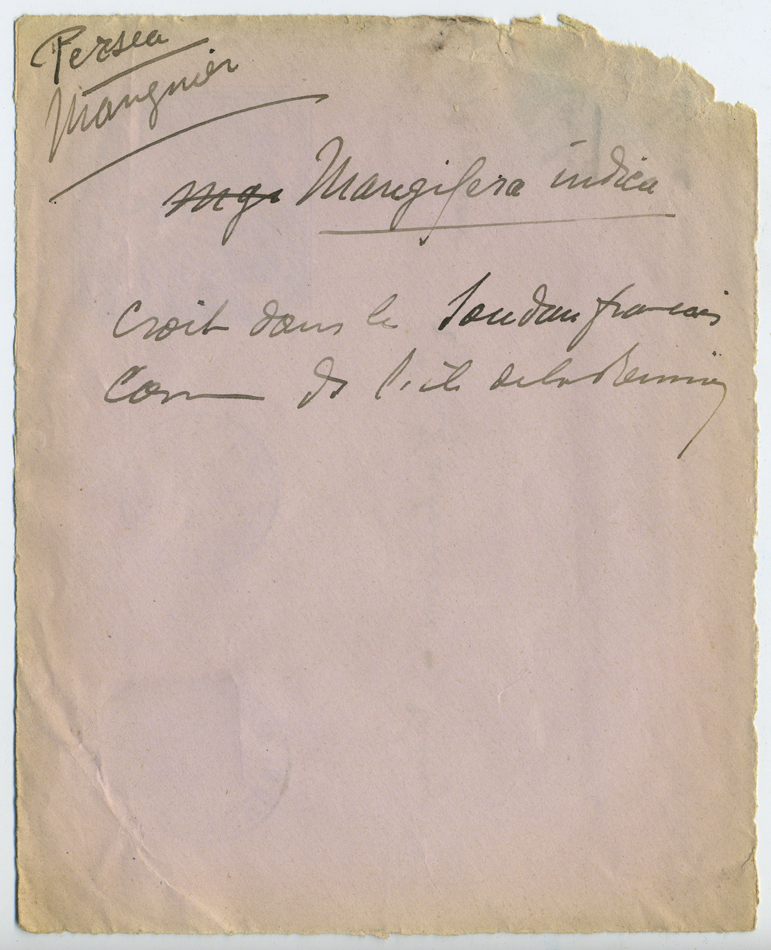 Persea
Manguier
Mangifera indica
Croit dans le Soudan français
Com de l'île de la Réunion